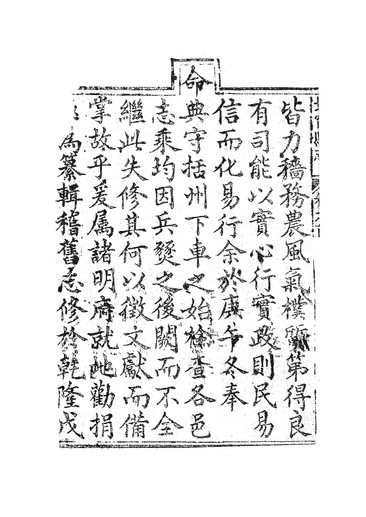 皆力穡務農風氣樸質第得良
有司能以實心行實政則民易
信而化易行余於庚午冬奉
命典守括州下車之始檢查各邑
志乘均因兵燹之後闕而不全
繼此失修其何以徵文獻而備
掌故乎爰属諸明府就地勸捐
為纂輯稽舊志修於乾隆戊